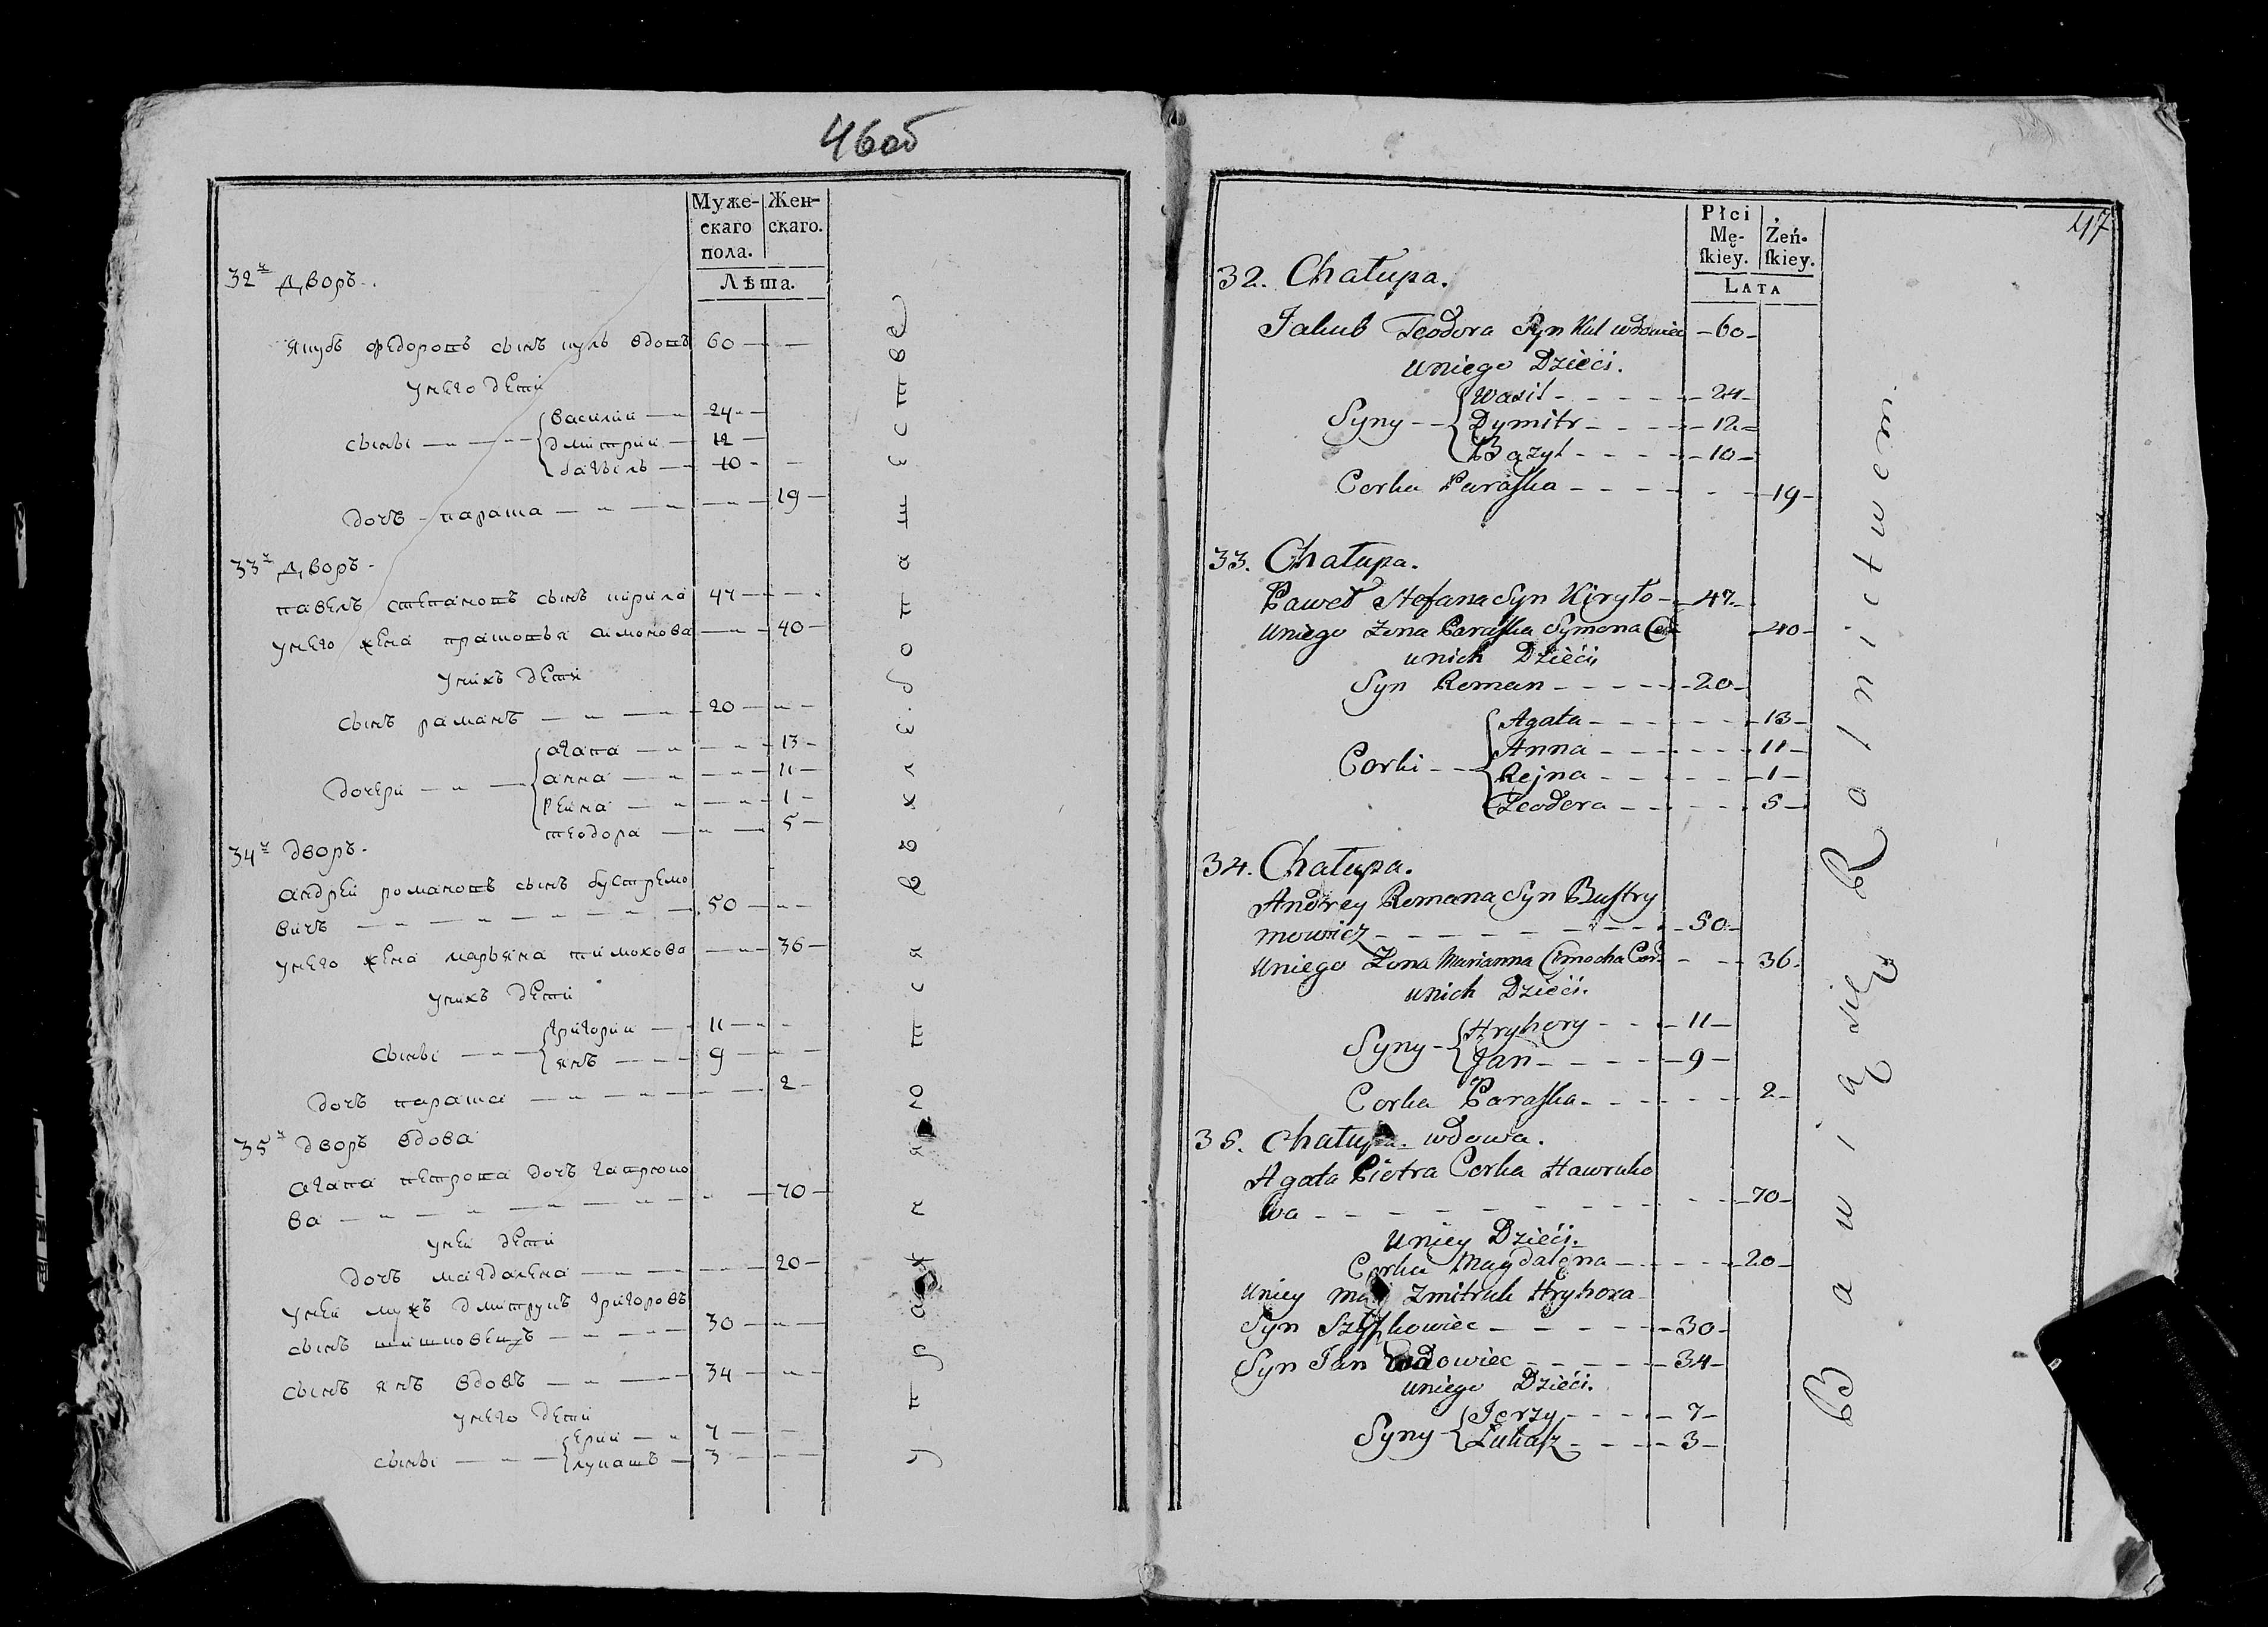 46об
Муже-
скаго
пола.
Жен-
скаго.
Лѣта.
32й Дворъ.
якубъ федоровъ сынъ куль вдовъ 60
унего дети
василий 24
сыны дмитрий 12
базыль 10
дочь параша 19
33й Дворъ.
павелъ степановъ сынъ кирила 47
унего жена прасовья симонова 40
унихъ дети
сынъ раманъ 20
агата 13
анна 11
дочери рейна 1
теодора 5
34й дворъ.
андрей романовъ сынъ бустремо
вичъ 50
унего жена марьяна тимохова 36
унихъ дети
григорий 11
сыны янъ 9
дочь параша 2
35й дворъ вдова
агата петрова дочь
ва 70
уней дети
дочь магдалена 20
уней мужъ дмитрукъ григоровъ
сынъ 30
сынъ янъ вдовъ 34
унего дети
ерий 7
сыны лукашъ 3
упражняются въ хлебопашестве
47
Płci
Mę-
skiey.
Żeń-
skiey.
LATA
32. Chałupa.
Jakub Teodora Syn Kul wdowiec 60
uniego Dzieci.
Wasil 24
Syny Dymitr 12
Bazyl 10
Corka Paraska 19
33. Chałupa.
Paweł Stefana Syn Kiryło 47
uniego Zona Paraska Symona Cor 40
unich Dzieci
Syn Roman 20
Agata 13
Anna 11
Corki Rejna 1
Teodora 5
34. Chałupa.
Andrey Romana Syn Bustry
mowicz 50
uniego Zona Marianna Cimocha Cor 36
unich Dzieci.
Hryhory 11
Syny Jan 9
Corka Paraska 2
35. Chałupa wdowa.
Agata Piotra Corka Hawruko
wa 70
uniey Dzieci.
Corka Magdalena 20
uniey mąż Zmitruk Hryhora
Syn 30
Syn Jan Wdowiec 34
uniego Dzieci.
Jerzy 7
Syny Łukasz 3
Bawią się Rolnictwem.